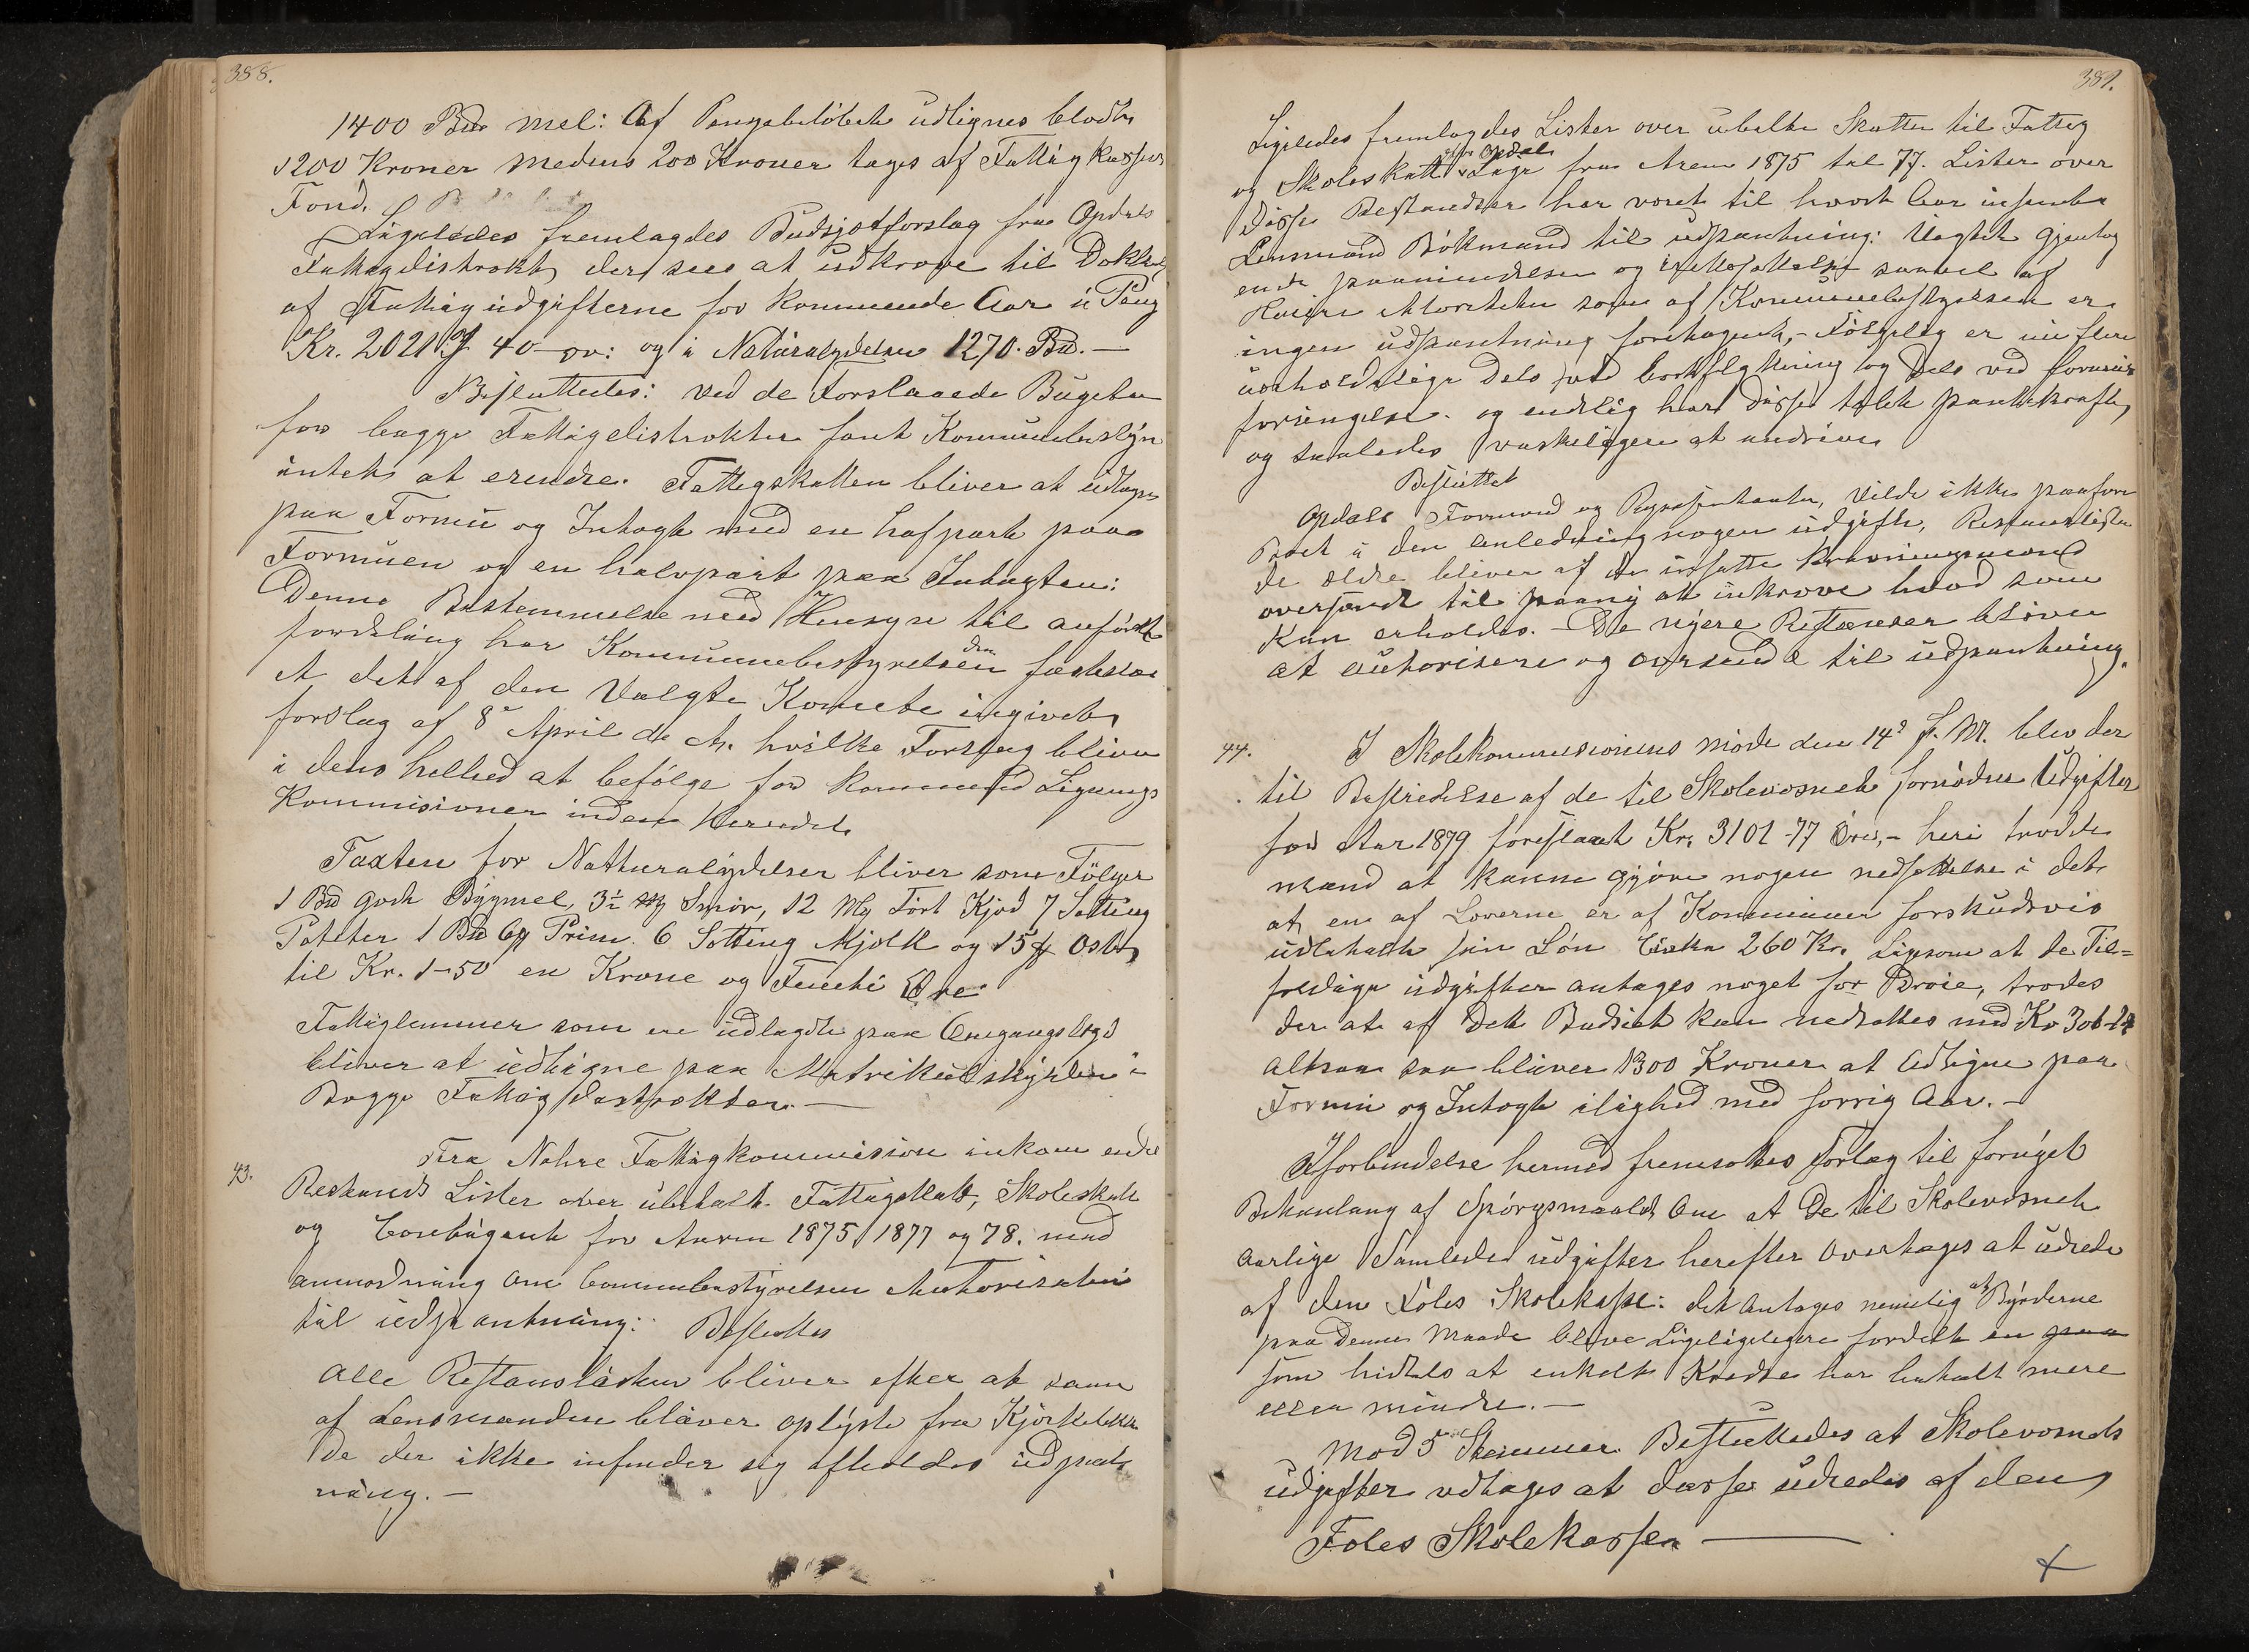 388.
1400 Bd mel: Af Pengebelöbet udlignes blodt
1200 Kroner medens 200 Kroner tages af Fattigkassens
Fond.
Ligeledes fremlagdes Budsjetforslag fra Opdals
Fattigdistrikt, der sees at udkræve til Dekkel
af Fattigudgifterne for kommende Aar i Peng
Kr. 2021 40 ør: og i Naturalydelser 1270. Bd. —
Besluttedes: Ved de Forslaaede Bugeter
for begge Fattigdistrikter fant Kommunebestyr
intet at erendre. Fattigskatten bliver at udlign
paa Formue og Indtægt med en hafpart paa
Formuen og en halvpart paa Indtægten:
Denne Bestemmelse med Hensyn til anförte
fordeling har Kommunebestyrelsen
At det af den Valgte Komete ingivet
forslag af 8de April d. A. hvilke Forslag bliver
i dens helhed at befölge for kommend Lignings
Kommisioner inden Herredet
Taxten for Natturalydelser bliver som Fölger
1 Bd godt Bygmel, 3½ Smör, 12 Mg Tört Kjød 7 Sotting
Poteter 1 Bd 6 Prim. 6 Sotting Mjolk og 15 Ost
til Kr. 1-50 en Krone og Femti Øre
Fattiglemmer som er udlagte paa Omgangslegd
bliver at udligne paa Matrikulskylden i
Begge Fattigdistrikter. —
43. Fra Nohre Fattigkommission inkom endel
Restands Lister over ubetalt Fattigskatt, Skoleskatt
og for Aaren 1875, 1877 og 78. med
anmodning om Communbestyrelsen Autorisation
til udpantning: Besluttes
Alle Restanslister bliver efter at samm
af Lensmanden bliver oplyste fra Kjörkebakken
De der ikke infinder sig afholdes udpant
ning. —
389.
Ligeledes fremlagdes Lister over ubetalte Skatter til Fattig
og Skoleskatt Opdal fra Aaren 1875 til 77. Lister over
Disse Restandser har voret til hvert Aar insendte
Lensmand Bökmand til udpantning: Uagtet gjentag
ende paamindelser og saavel af
som af Kommunebestyrelsen er
ingen udpantning foretaget, – Fölgelig er nu flere
uerholdelige Dels ved bortflytning og Dels ved formues
foringelse. og endlig har disse tabt pantekraft,
og saaledes vaskeligere at indrive
Besluttet
Opdals Formend og Representanter, Vilde ikke paaföre
i den anledning nogen udgifte, Restanslister
de eldre bliver af de insatte Kræmingsmend
oversendt til paany at inkræve hvad som
kan erholdes. – De nyere Restanser bliver
at autorisere og oversende til udpantning.
44. I Skolekommisionens möde den 14de f. M. blev der
til Bestridelse af de til Skolevæsnet fornödne Udgifter
for Aar 1879 foreslaaet Kr. 3101-77 Öre, – heri trodde
mand at kunne gjöre nogen nedsettelse i det
at en af Lærerne er af Kommunen forskudsvis
udbetalt sin Lön Cirka 260 Kr. Ligesom at de Til=
feldige udgifter antages noget for Dröie, troedes
der at af Dette Budsjet kan nedsettes med Kr 306-
altsaa saa bliver 1300 Kroner at udligne paa
Formue og Indtogt i lighed med forrig Aar. –
I forbindelse hermed fremsattes forlag til fornyet
Behanlang af Spörgsmaalet Om at De til Skolevesnet
aarlige Samlede udgifter herefter Overtages at udrede
af den Föles Skolekasse: det antages nemlig at Byrderne
paa Denne Maade blive Ligeligelegere fordelt en paa
som hidtils at enkelt Kredse har betalt mere
eller mindre. —
Mod 5 Stemmer Besluttedes at Skolevosnets
udgifter vedtages at disse udredes af den
Foles Skolekassen —